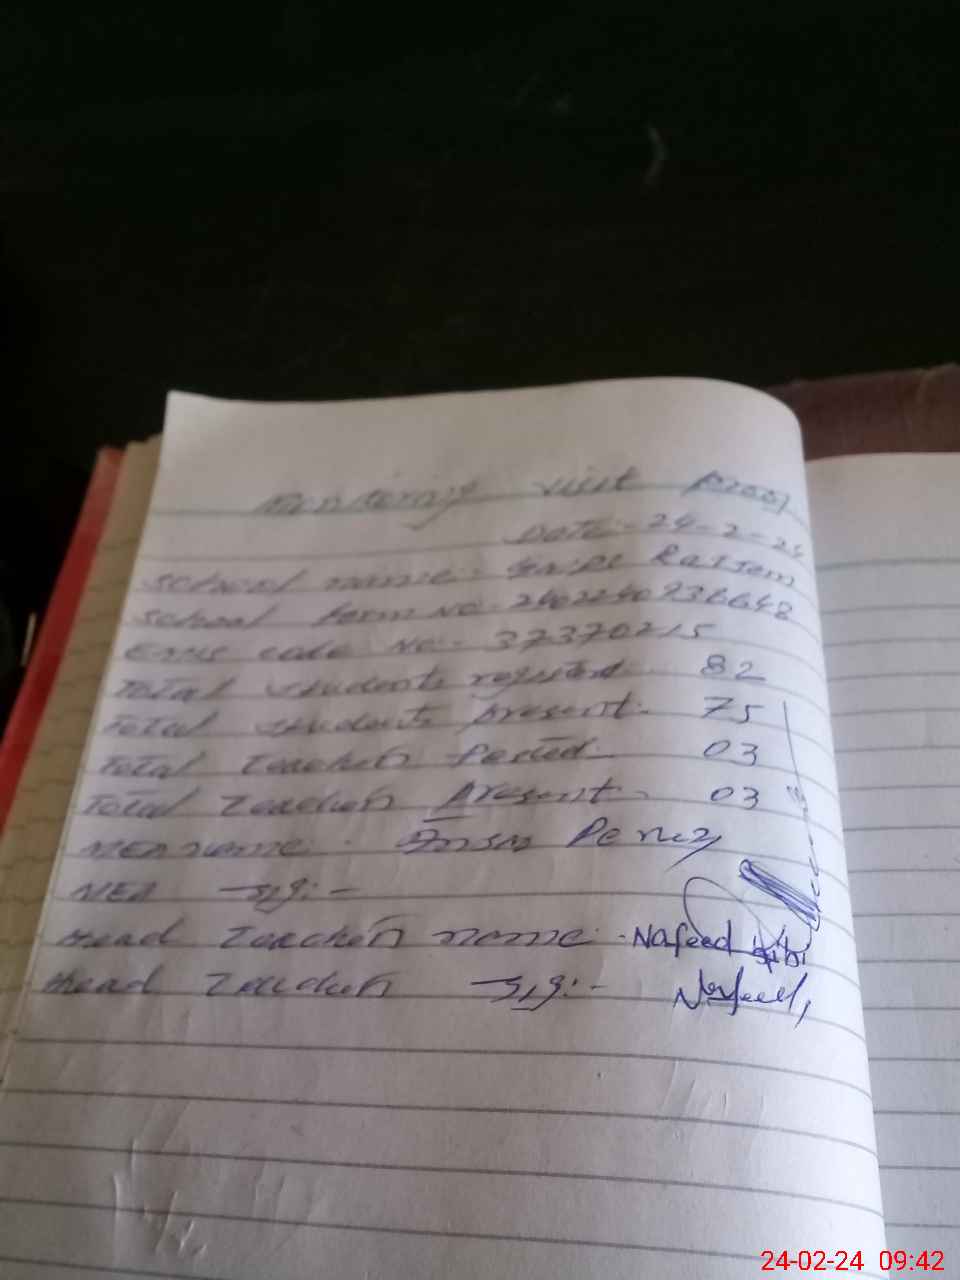 Monitoring visit proof
Date:- 24-2-24
School name:- Rattem
School form No:- 2402240936648
EMIS code No:- 37370215
Total students registerd 82
Total students present:- 75
Total Teachers Posted 03
Total Teachers Present:- 03
MEA name:-
MEA sig:-
Head Teacher name:- Nafeed bibi
Head Teacher sig:- Nafeed
24-02-24 09:42